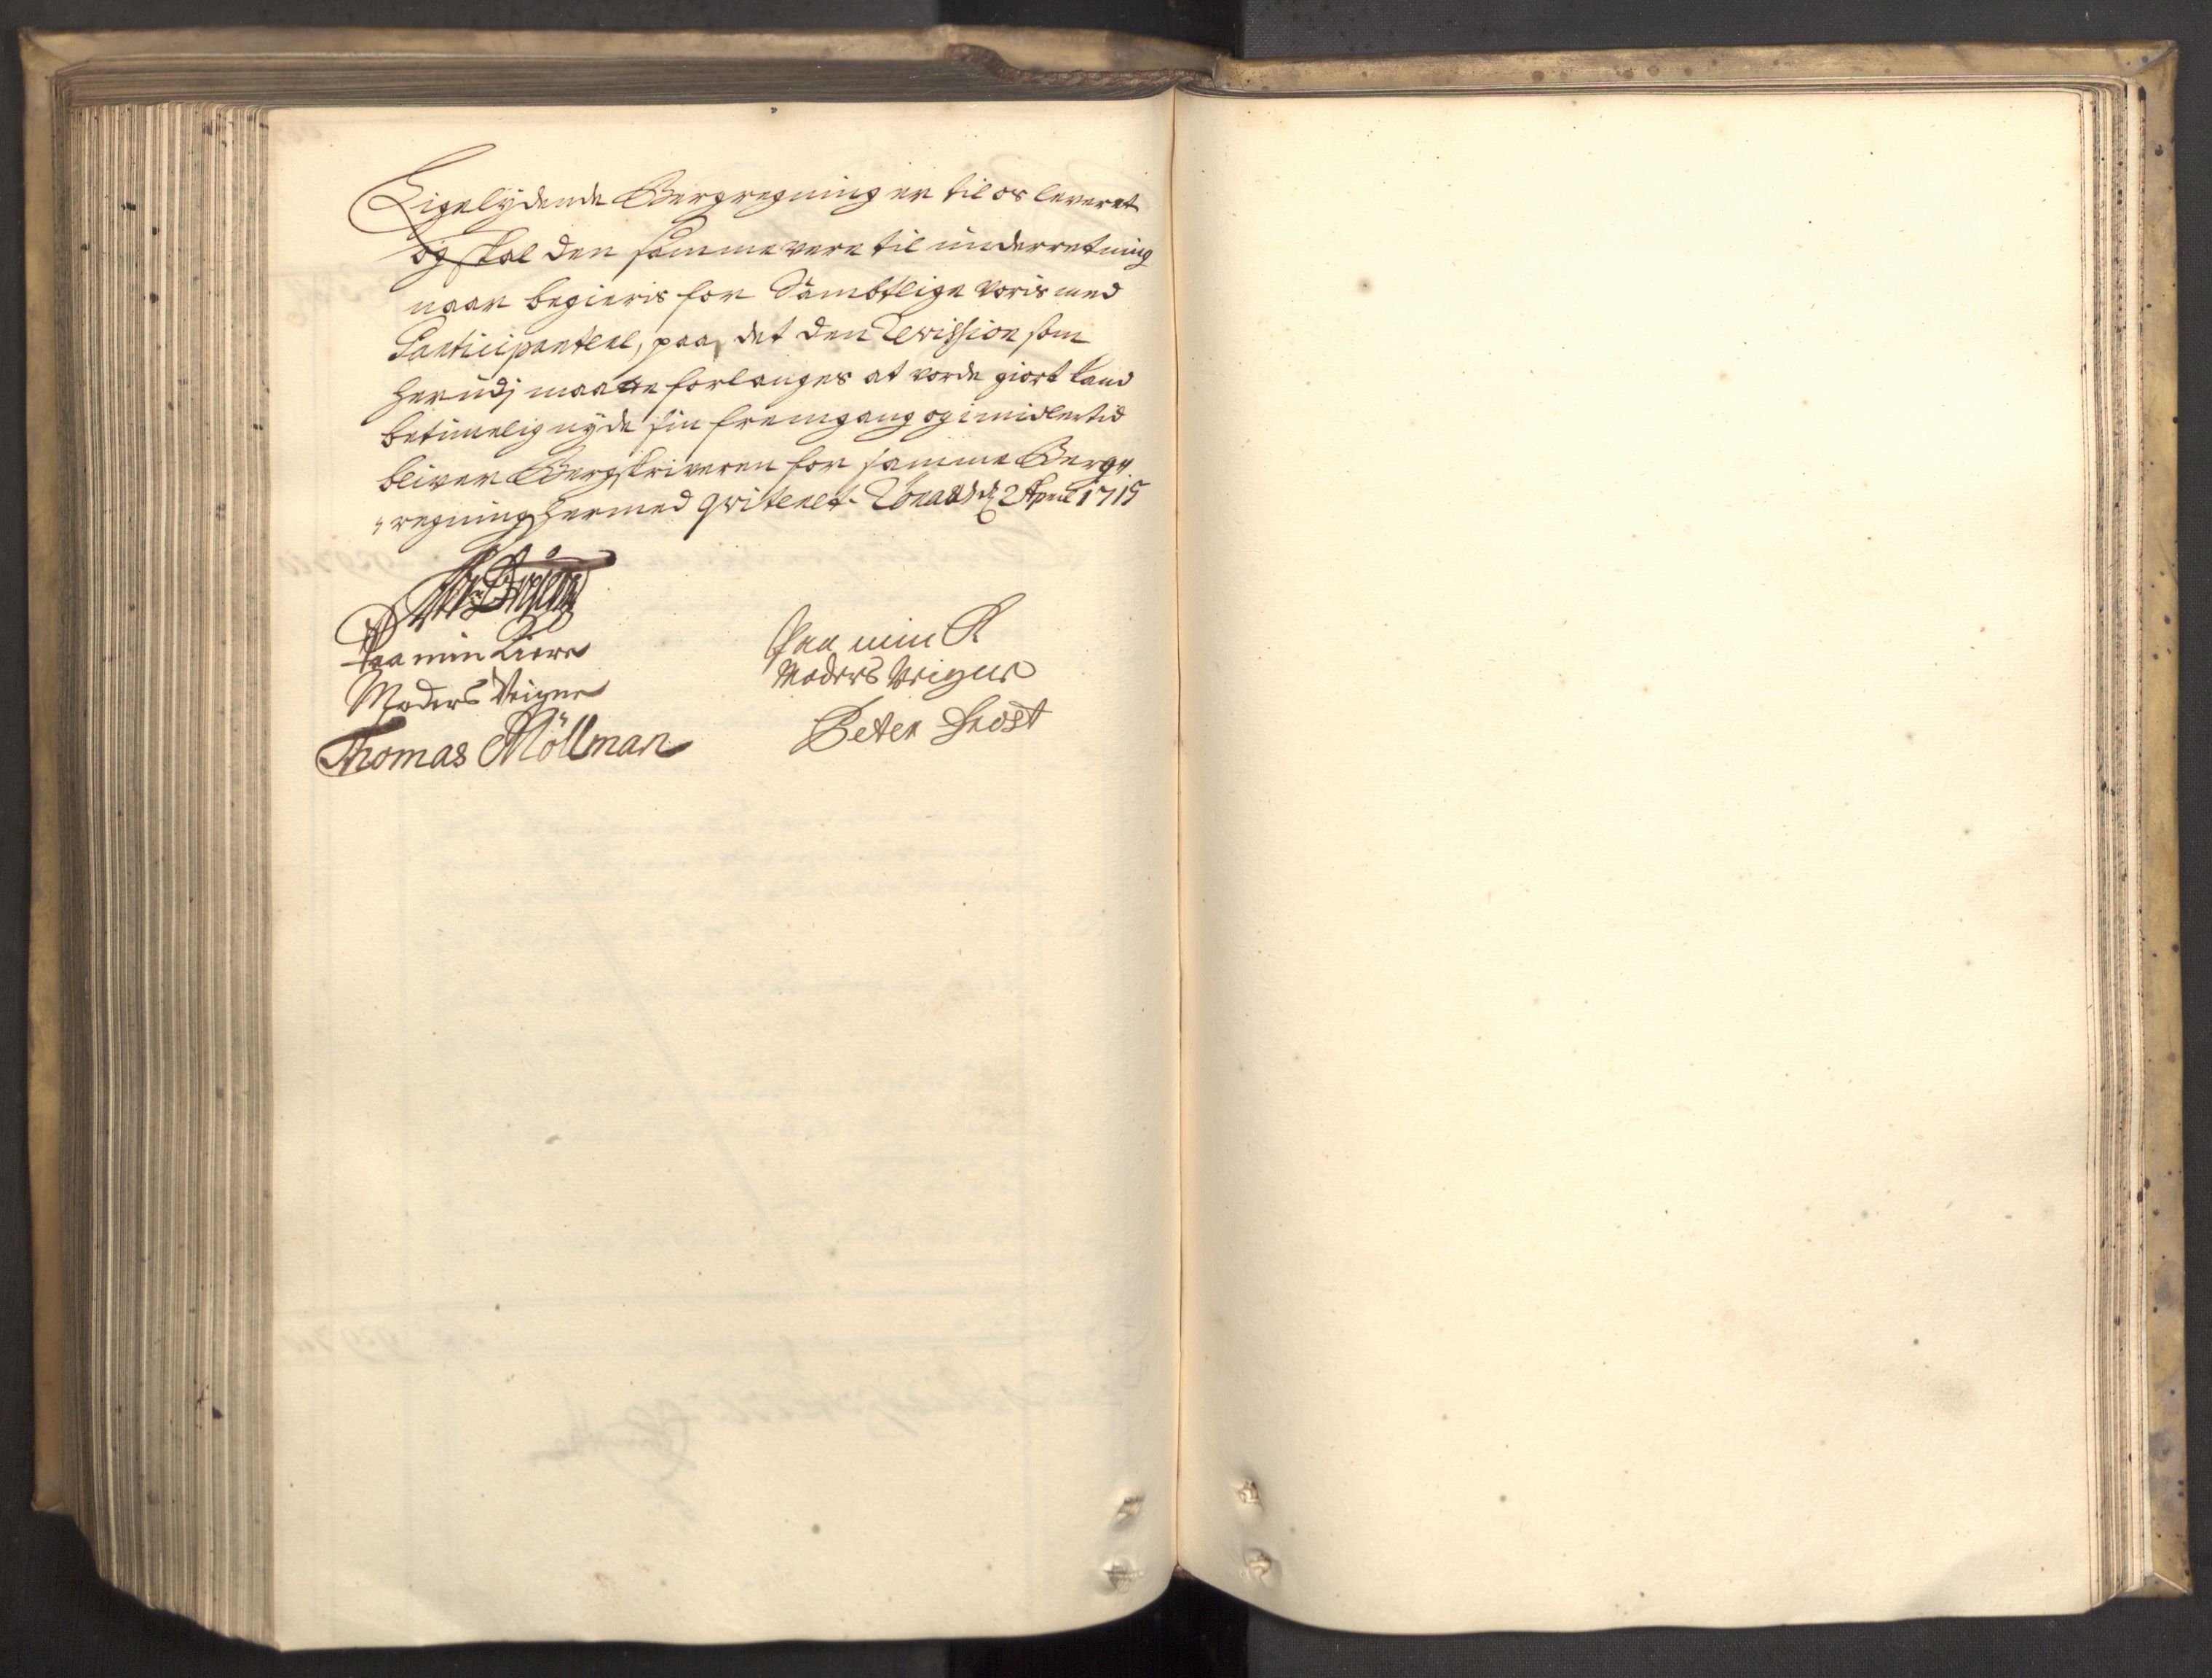 Ligelydende Bergregning er til os leveret
og skal den samme vere til underretning
naar begieris for Sambtlige voris med
Participanterl, paa det den Revission som
herudj maatte forlanges at vorde giort kand
betimelig nyde sin fremgang og imidlertid
bliver Bergskriveren for samme Berg„
„regning hermed qviteret. 2 April 1715
Paa min Kiere
Moders Veigne
Thomas Möllman
Paa min K
Moders Veigne
Peter